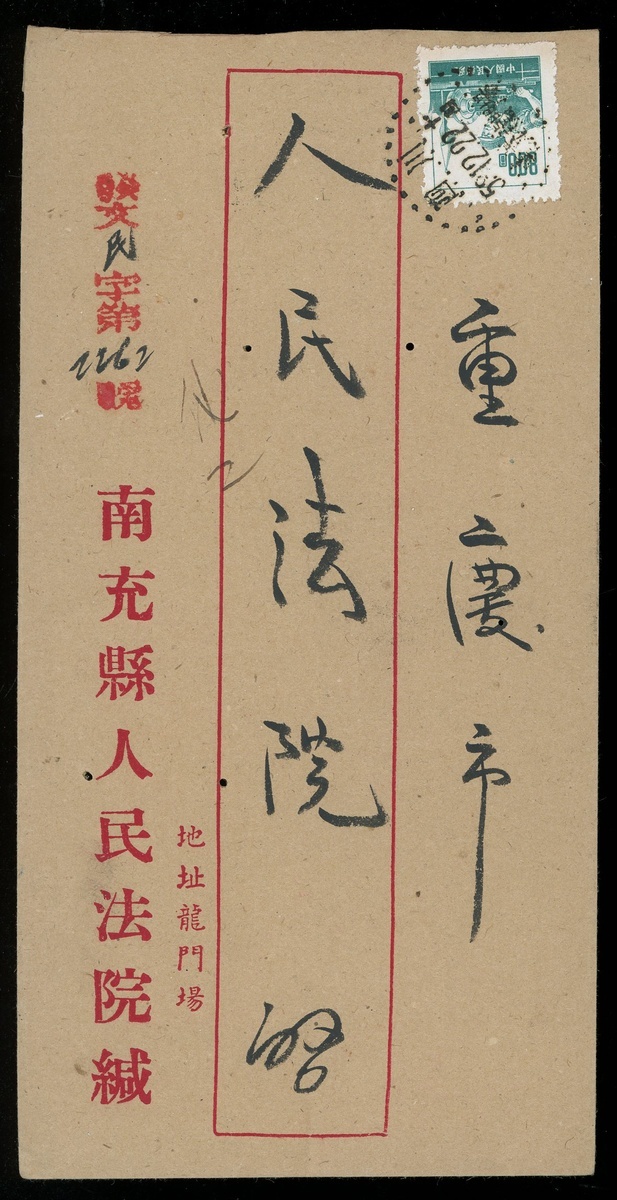 重慶市
人民法院 啓
發文民字第2262號
南充縣人民法院緘
地址龍門場